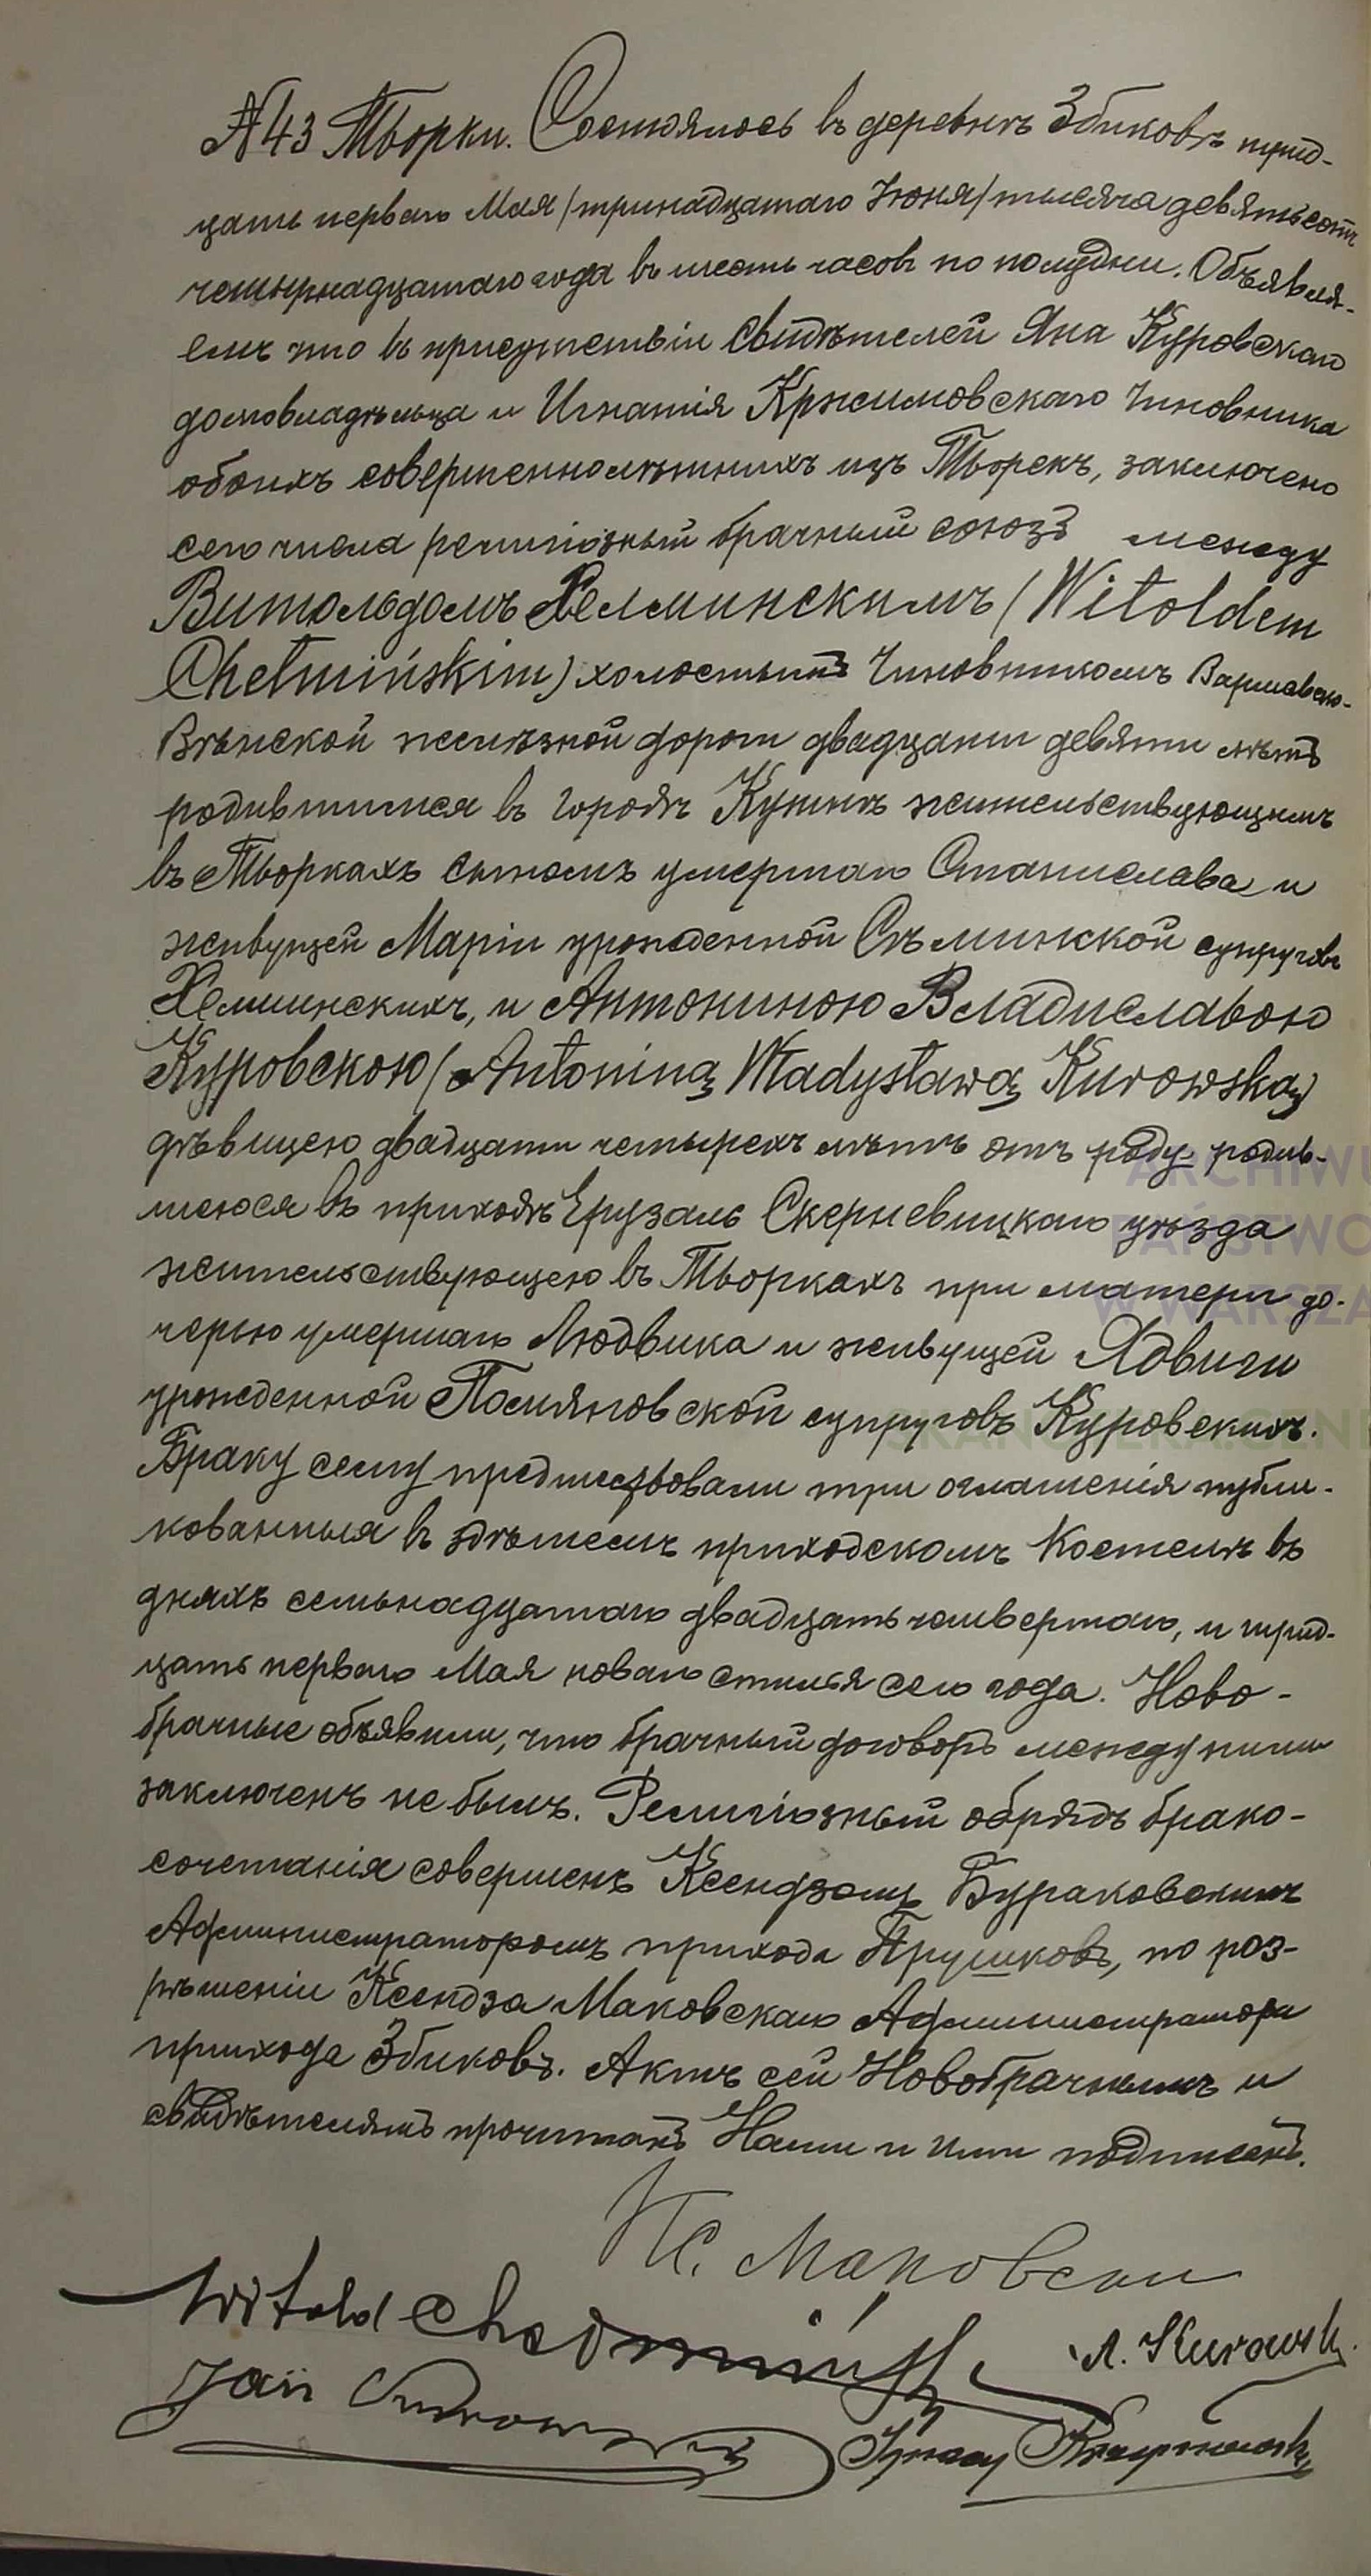 № 43 Творки. Состоялось въ деревнѣ Збиковѣ трид-
цать перваго Мая /тринадцатаго Іюня/ тысяча девятьсотъ
четырнадцатаго года въ шесть часовъ по полудни. Объявля-
емъ что въ присутствіи свидѣтелей Яна Куровскаго
домовладѣльца и Игнатія Крысиновскаго Чиновника
обоихъ совершеннолѣтнихъ изъ Творекъ, заключено
сего числа религіозный брачный союзъ между
Витольдомъ Хелминскимъ (Witoldem
Chełmińskim) холостымъ Чиновникомъ Варшавско-
Вѣнской желѣзной дороги двадцати девяти лѣтъ
родившимся въ городѣ жительствующимъ
въ Творкахъ сыномъ умершаго Станислава и
живущей Маріи урожденной супруговъ
Хелминскихъ, и Антониною Владиславою
Куровскою (Antoniną Władysławą Kurowską)
дѣвицею двадцати четырехъ лѣтъ отъ роду родив-
шеюся въ приходѣ Ерузаль Скерневицкаго уѣзда
жительствующею въ Творкахъ при матери до-
черью умершаго Людвика и живущей Ядвиги
урожденной Помяновской супруговъ Куровскихъ.
Браку сему предшествовали три оглашенія публи-
кованныя въ здѣшемъ приходскомъ Костелѣ въ
дняхъ семьнадцатаго двадцать четвертаго, и трид-
цать перваго Мая новаго стиля сего года. Ново-
брачные объявили, что брачный договоръ между ними
заключенъ не былъ. Религіозный обрядъ брако-
сочетанія совершенъ Ксендзомъ Бураковскимъ
Администраторомъ прихода Прушковъ, по роз-
рѣшеніи Ксендза Маковскаго Администратора
прихода Збиковъ. Актъ сей Новобрачнымъ и
свидѣтелямъ прочитанъ Нами и ими подписанъ.
Кс. Маковски
Witold Chełmiński
A. Kurowska
Jan Kurowski
Ignacy
ARCHIWU
PAŃSTWO
W WARSZA
SKANOTEKA.GENE